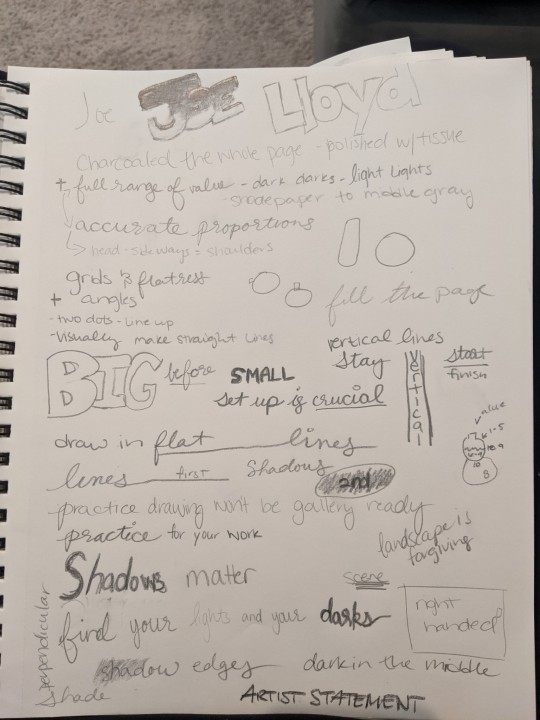 Joe JOE Lloyd
Charcoaled the whole page - polished w/tissue
+ full range of value - dark darks - light lights
to mobile gray
accurate proportions
head - sideways = shoulders
grids &
+ angles
fill the page
- two dots - line up
- Visually make straight lines
vertical lines
stay
vertical
start
finish
BIG before SMALL
set up is crucial
value
1-5
10
8
draw in flat lines
lines first Shadows 2nd
practice drawing won't be gallery ready
practice for your work
landscape is
forgiving
Shadows matter
scene
right
handed
find your lights and your darks
perpendicular
shadow edges dark in the middle
Shade
ARTIST STATEMENT